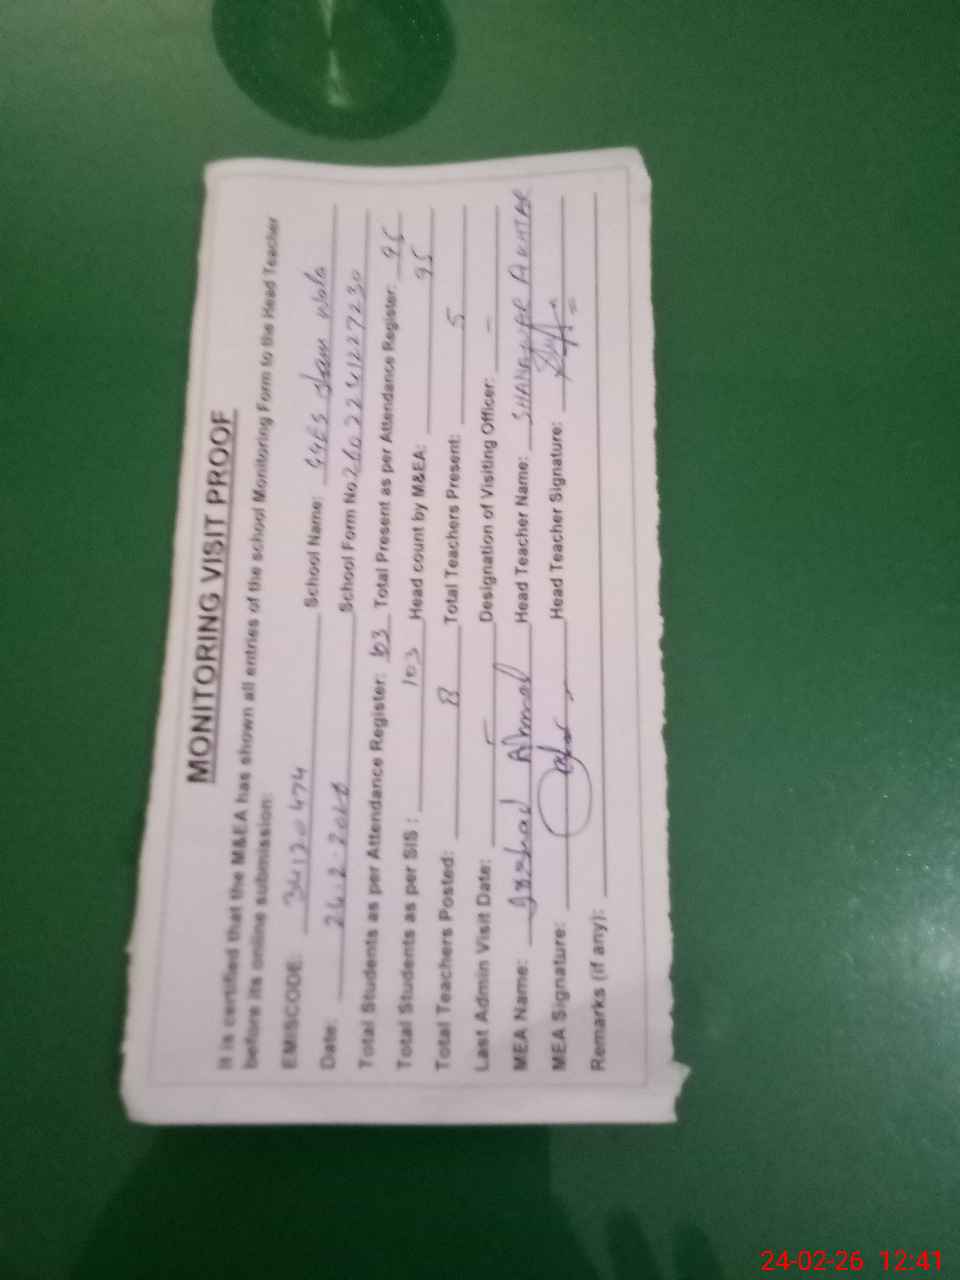 MONITORING VISIT PROOF
It is certified that the M&EA has shown all entries of the school Monitoring Form to the Head Teacher
before its online submission:
EMISCODE: 34120474 School Name: GGES Wala
Date: 24.2.2026 School Form No.
Total Students as per Attendance Register: 103 Total Present as per Attendance Register: 95
Total Students as per SIS: 103 Head count by M&EA: 95
Total Teachers Posted: 8 Total Teachers Present: 5
Last Admin Visit Date: - Designation of Visiting Officer: -
MEA Name: Arshad Ahmad Head Teacher Name: AKHTAR
MEA Signature: Head Teacher Signature:
Remarks (if any):
24-02-26 12:41